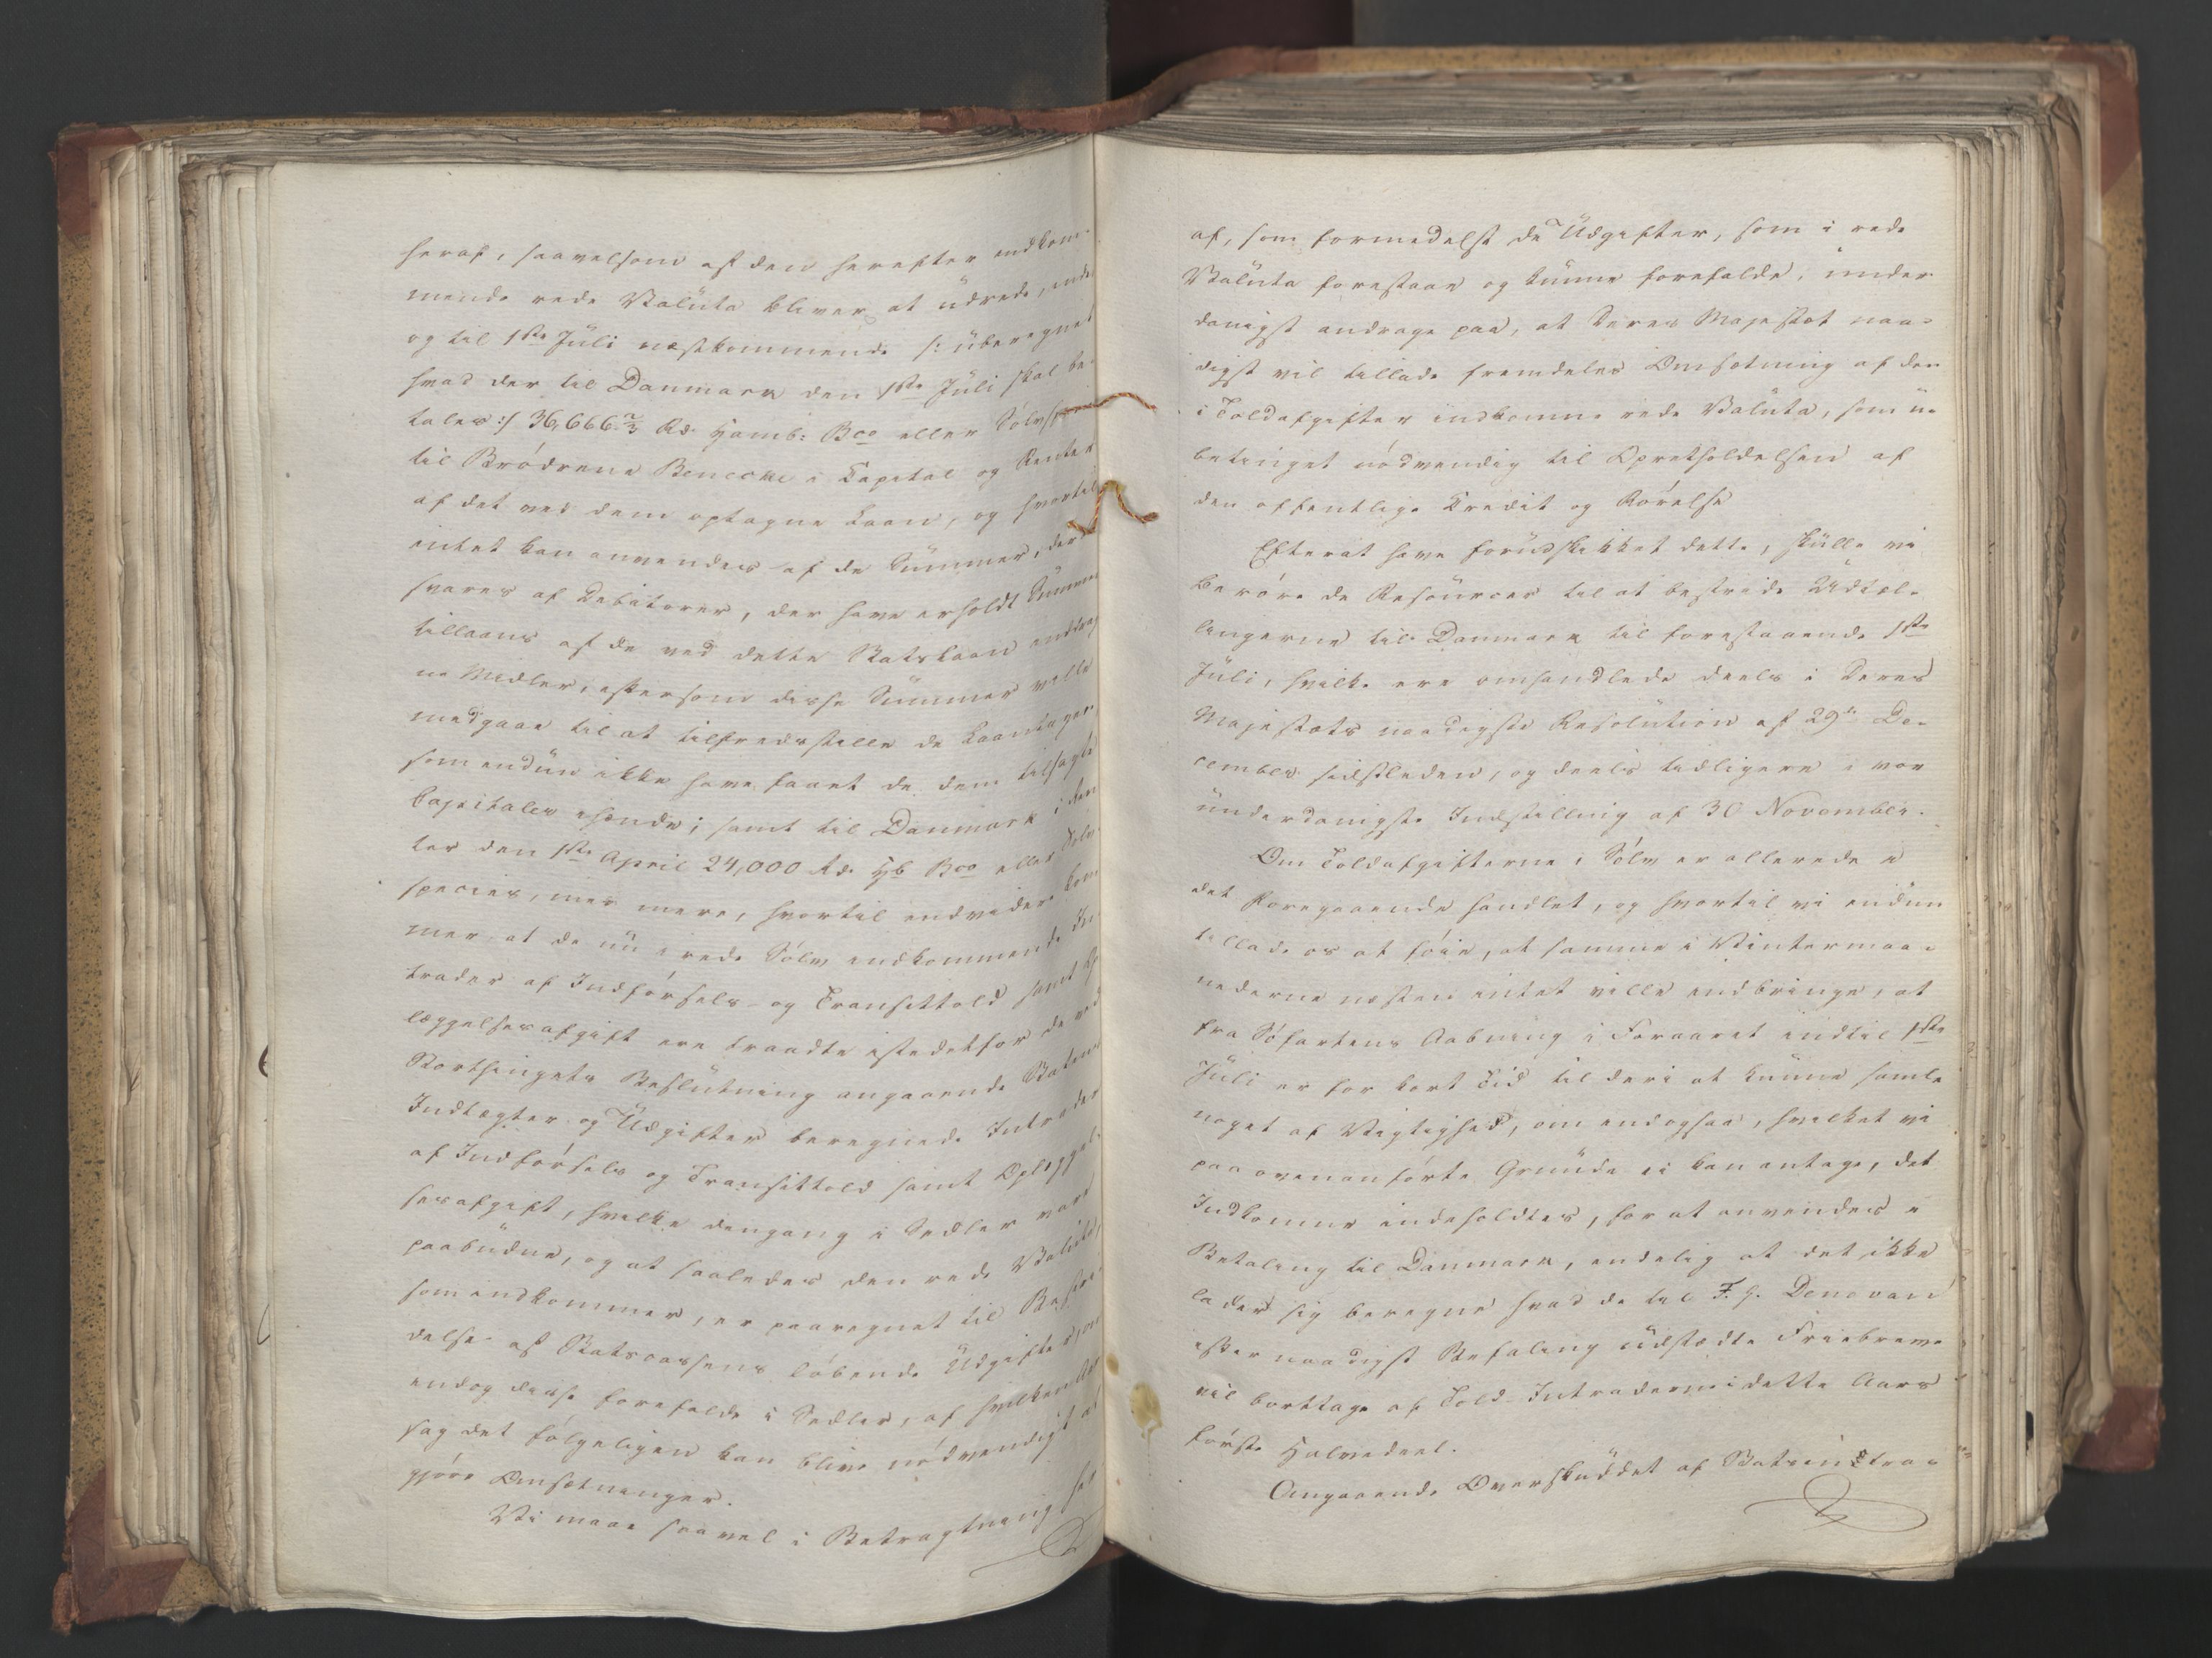 heraf, saavelsom af den herefter indkom-
mende rede Valuta bliver at udrede, inde
og til 1ste Juli næstkommende /: uberegnet
hvad der til Danmark den 1ste Juli skal be-
tales :/ 36,666 2/3 Rd. Hamb: Bco eller Sölvspecies
til Brödrene Benecke i Capital og Renter
af det ved dem optagne Laan, og hvortil
intet kan anvendes af de Summer, der
svares af Debitorer, der have erholdt Summer
tillaans af de ved dette Statslaan inddrag-
ne Midler, eftersom disse Summer ville
medgaae til at tilfredsstille de Laantagere
som endnu ikke have faaet de dem tilsagte
Capitaler ihænde; samt til Danmark i Ren-
ter den 1ste April 24,000 Rd. Hb Bco eller Sölv
species, med mere, hvortil endvidere kom-
mer, at de nu i rede Sölv indkommende In-
trader af Indförsels- og Transittold samt Op-
læggelsesafgift ere traadte istedetfor de ved
Storthingets Beslutning angaaende Statens
Indtægter og Udgifter beregnede Intrader
af Indförsels og Transittold samt Oplæggel-
sesafgift, hvilke dengang i Sedler vare
paabudne, og at saaledes den rede Valuta,
som indkommer, er paaregnet til Bestri-
delse af Statscassens löbende Udgifter, om
endog disse forefalde i Sedler, af hvilken Aar-
sag det fölgeligen kan blive nödvendigt at
gjöre Omsætninger.
Vi maae saavel i Betragtning her-
af, som formedelst de Udgifter, som i rede
Valuta forestaae og kunne forefalde, under
danigst andrage paa, at Deres Majestæt naa-
digst vil tillade fremdeles Omsætning af den
i Toldafgifter indkomne rede Valuta, som u-
betinget nödvendig til Opretholdelsen af
den offentlige Credit og Rörelse
Efterat have forudskikket dette, skulle vi
beröre de Resourcer til at bestride Udtæl-
lingerne til Danmark til forestaaende 1ste
Juli, hvilke ere omhandlede deels i Deres
Majestæts naadigste Resolution af 29de De-
cember sidstleden, og deels tidligere i vor
underdanigste Indstilling af 30 November.
Om Toldafgifterne i Sölv er allerede i
det Foregaaende handlet, og hvortil vi endnu
tillade os at föie, at samme i Vintermaa-
nederne næsten intet ville indbringe, at
fra Söfartens Aabning i Foraaret indtil 1ste
Juli er for kort Tid til deri at kunne samle
noget af Vigtighed, om endogsaa, hvilket vi
paa ovenanförte Grunde ei kan antage, det
Indkomne indeholdtes, for at anvendes i
Betaling til Danmark, endelig at det ikke
lader sig beregne hvad de til F. H. Denovan
efter naadigst Befaling udstædte Friebreve
vil borttage af Told-Intraderne i dette Aars
förste Halvedeel.
Angaaende Overskuddet af Statsintra-